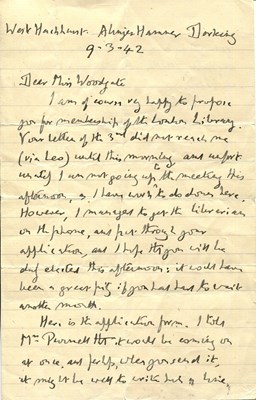 West Hackhurst Abinger Hammer Dorking
9-3-42
Dear Miss Woodgate
I am of course very happy to propose
you for membership of the London Library.
Your letter of the 3rd did not reach me
(via Leo) until this morning, and unfort
unately I am not going up to the meeting this
afternoon, as I have work to do down here.
However, I managed to get the Librarian
on the phone, and put through your
application, and I hope that you will be
duly elected this afternoon: it would have
been a great pity if you had had to wait
another month.
Here is the application form. I told
Mr Purnell that it would be coming on
at once, and perhaps, when you send it,
it might be well to write him a line,